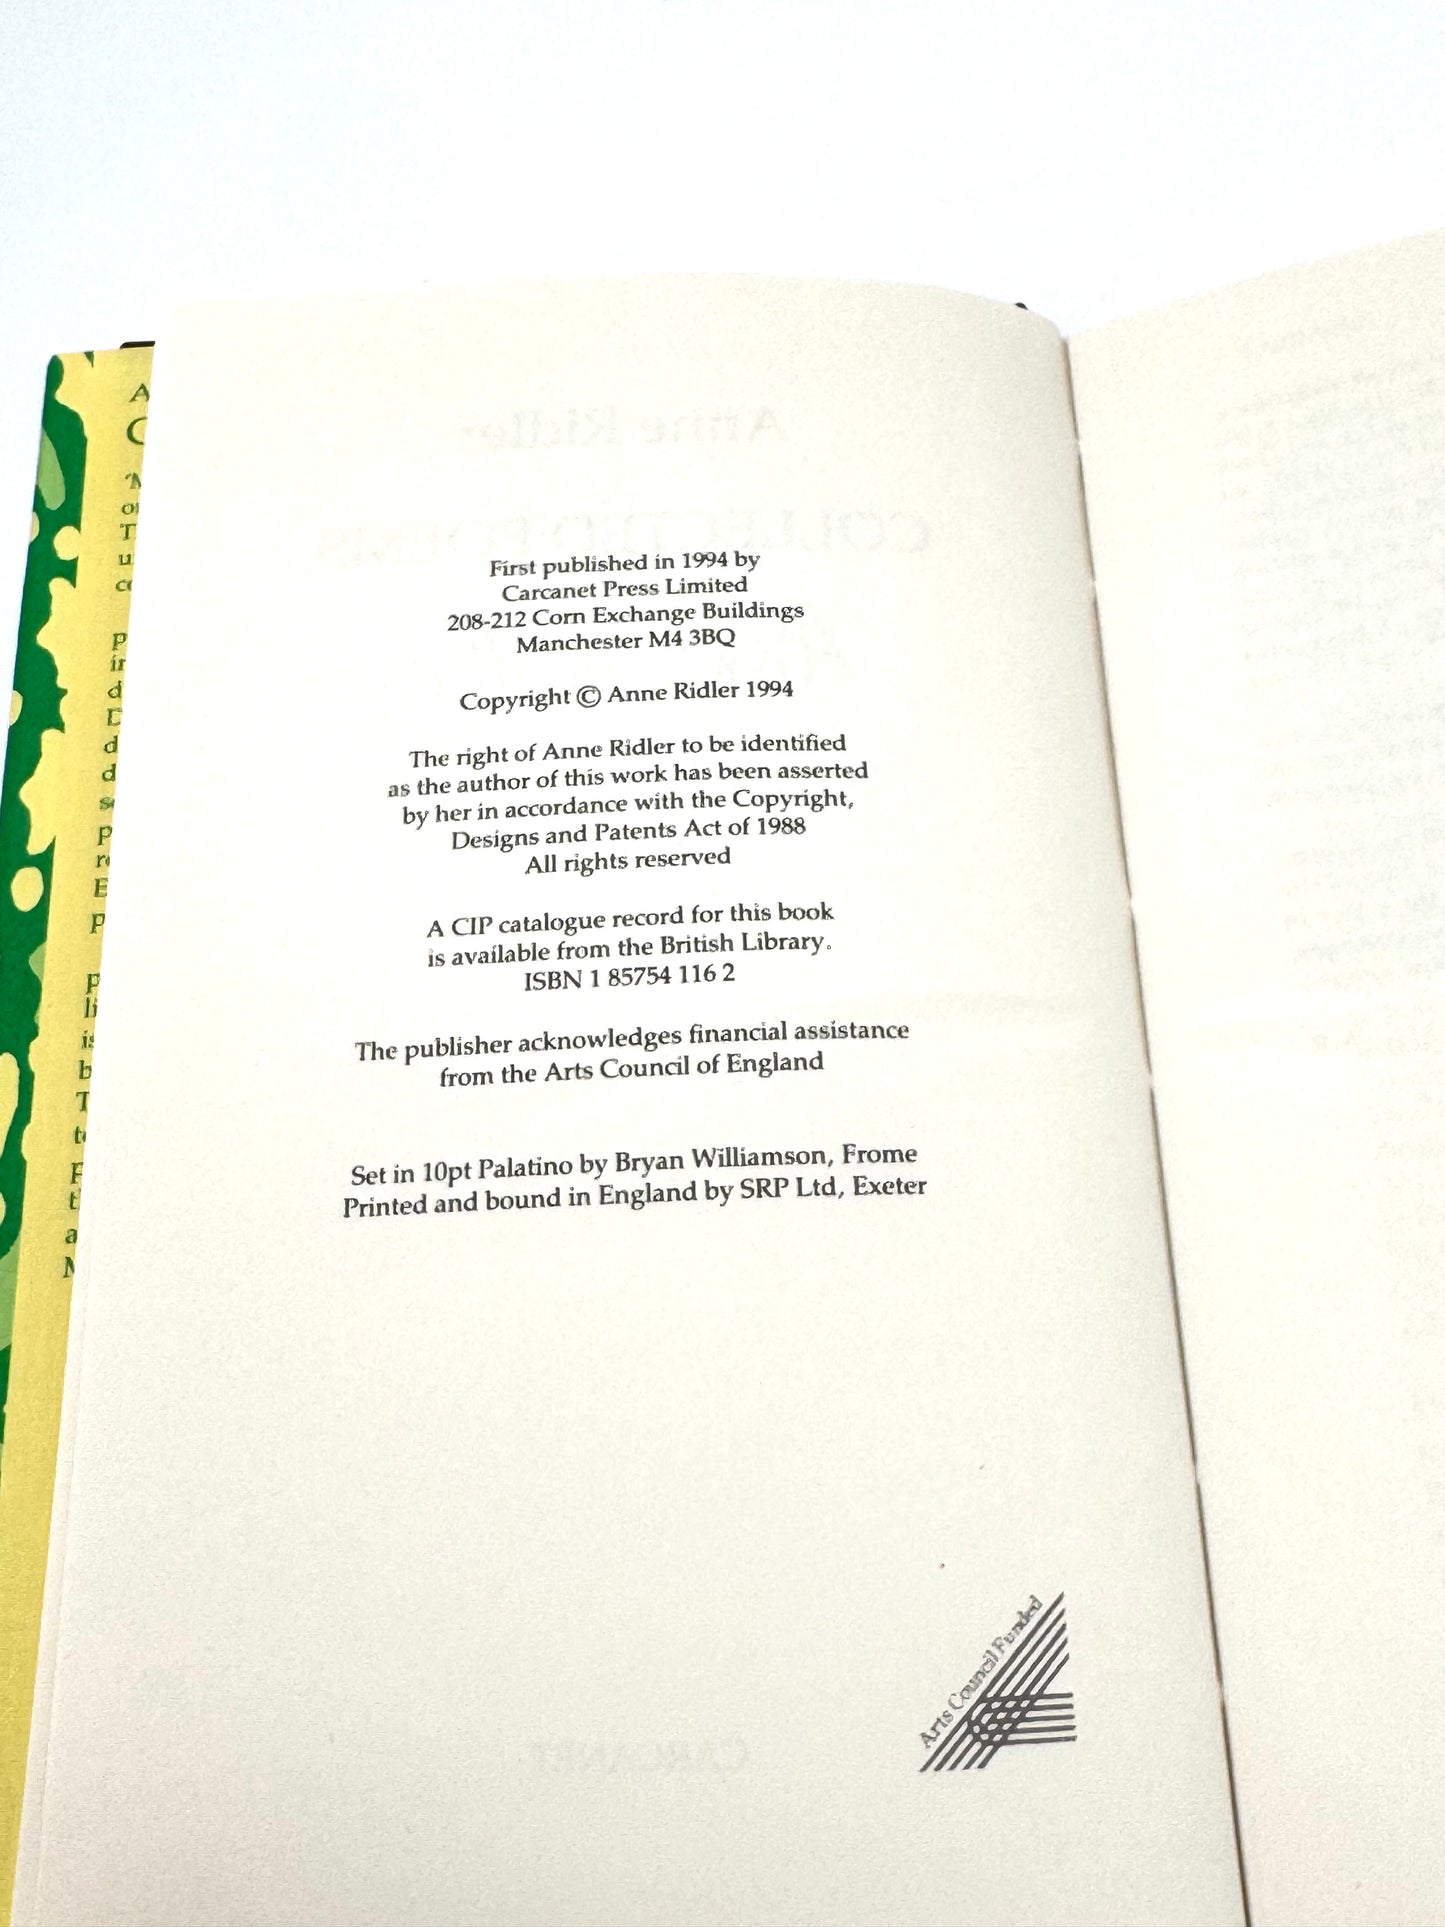 First published in 1994 by
Carcanet Press Limited
208-212 Corn Exchange Buildings
Manchester M4 3BQ
Copyright © Anne Ridler 1994
The right of Anne Ridler to be identified
as the author of this work has been asserted
by her in accordance with the Copyright,
Designs and Patents Act of 1988
All rights reserved
A CIP catalogue record for this book
is available from the British Library.
ISBN 1 85754 116 2
The publisher acknowledges financial assistance
from the Arts Council of England
Set in 10pt Palatino by Bryan Williamson, Frome
Printed and bound in England by SRP Ltd, Exeter
Arts Council Funded